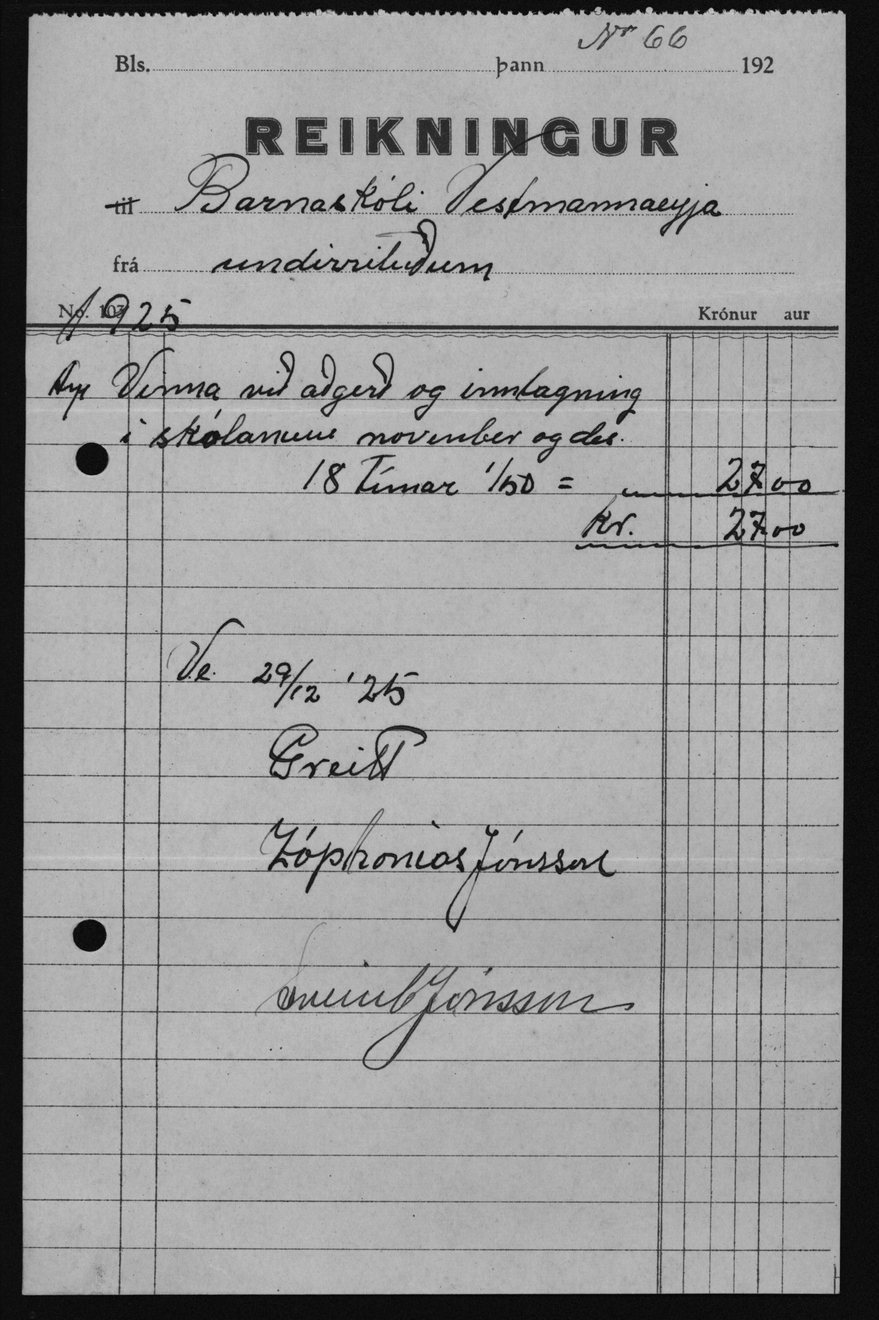 Nr 66
Bls. þann 192
REIKNINGUR
til Barnaskóli Vestmannaeyja
frá undirrituðum
No. 103 1925 Krónur aur
Vinna við aðgerð og innlagning
í skólanum november og des.
18 Tímar 1/50 = 27 00
Kr. 27 00
Ve. 29/12 '25
Greitt
Zóphonías Jónsson
Jónsson